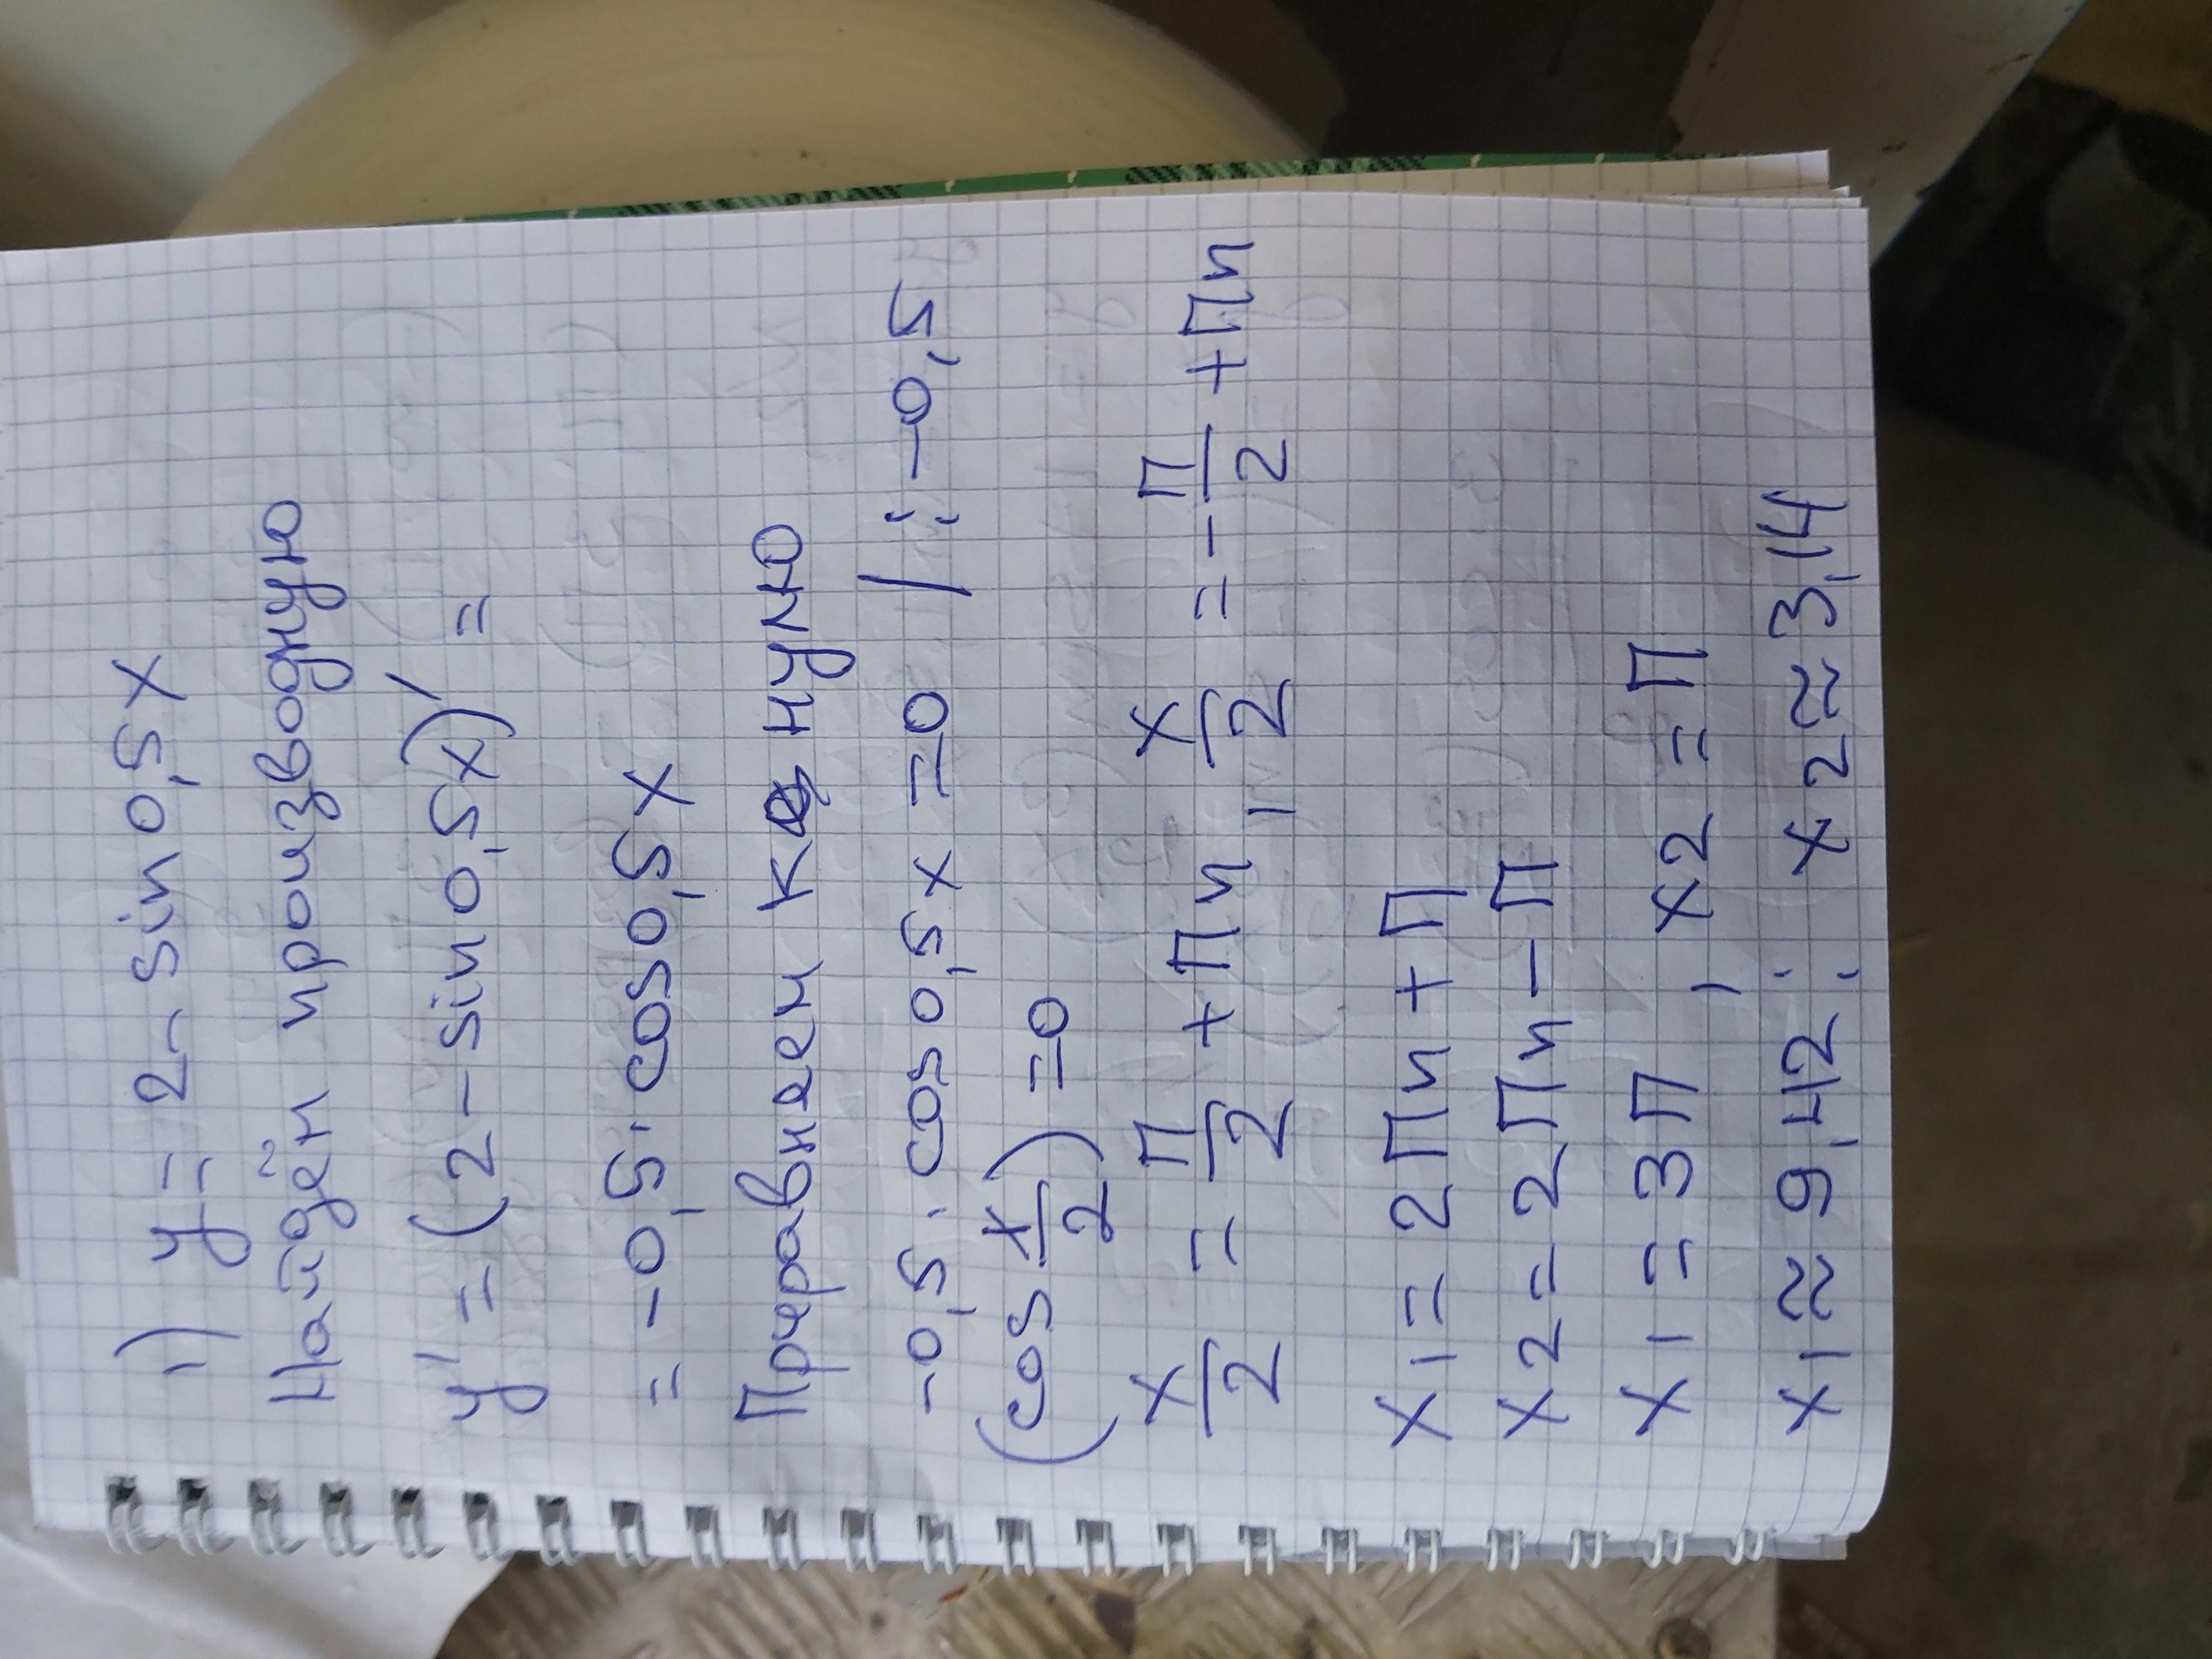 1) y = 2 - sin 0,5x
Найдём производную
y' = (2 - sin 0,5x)' =
= -0,5 · cos 0,5x
Приравнем к нулю
-0,5 · cos 0,5x = 0 / : -0,5
(cos x/2) = 0
x/2 = П/2 + Пn, x/2 = -П/2 + Пn
x1 = 2Пn + П
x2 = 2Пn - П
x1 = 3П, x2 = П
x1 ≈ 9,42; x2 ≈ 3,14